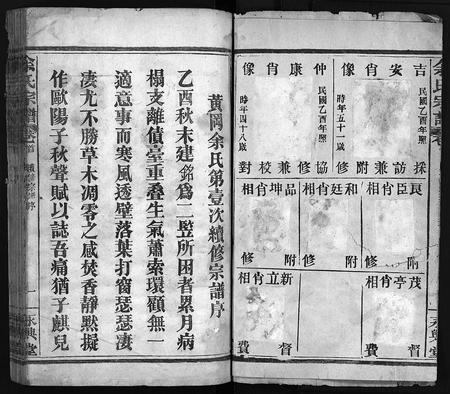 余氏宗譜
永興堂
吉安肖像
民國乙酉年照
時年五十一歲
採訪兼附修
仲康肖像
民國乙酉年照
時年四十八歲
協修兼校對
良臣肖相
附修
和廷肖相
附修
品坤肖相
附修
茂亭肖相
督費
新立肖相
督費
黃岡余氏第壹次續修宗譜序
乙酉秋末建銘為二豎所困者累月病
榻支離債臺重疊生氣蕭索環顧無一
適意事而寒風透壁落葉打窗瑟瑟淒
淒尤不勝草木凋零之感焚香靜默擬
作歐陽子秋聲賦以誌吾痛猶子麒兒
余氏宗譜
一
永興堂